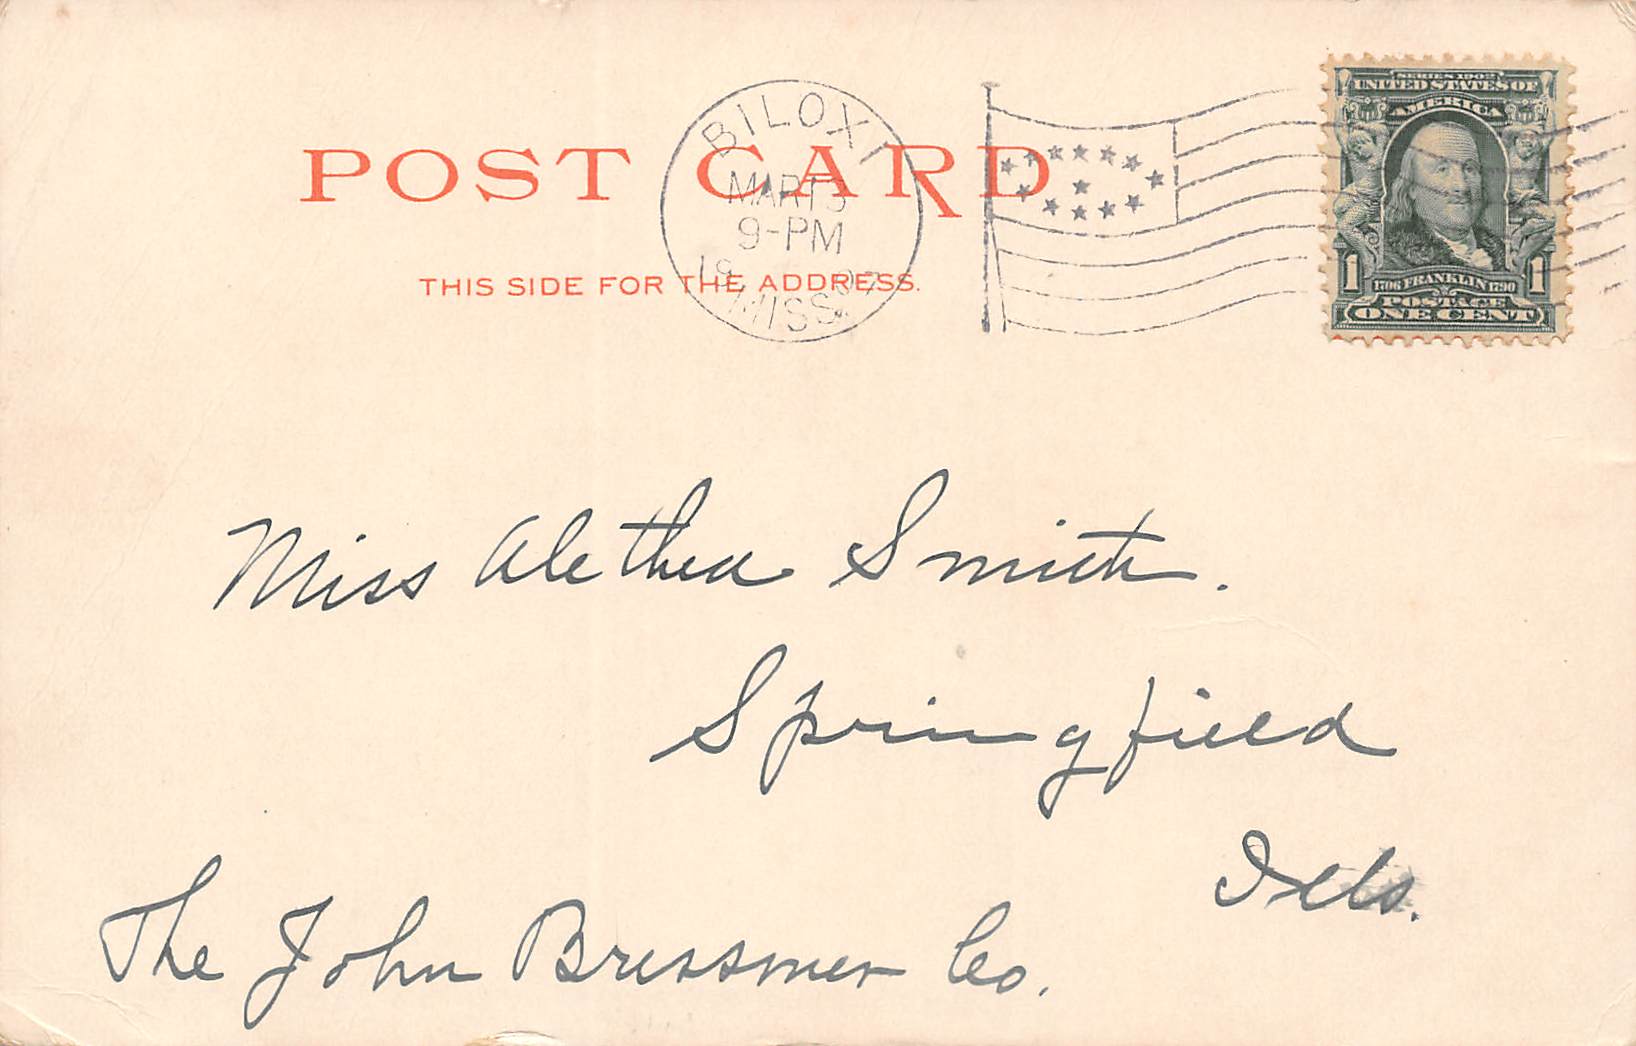 POST CARD
THIS SIDE FOR THE ADDRESS.
BILOXI
MAR 13
9-PM
MISS.
SERIES 1902
UNITED STATES OF
AMERICA
1 1706 FRANKLIN 1790 1
POSTAGE
ONE CENT
Miss Alethea Smith.
Springfield
Ills.
The John Bressmer Co.